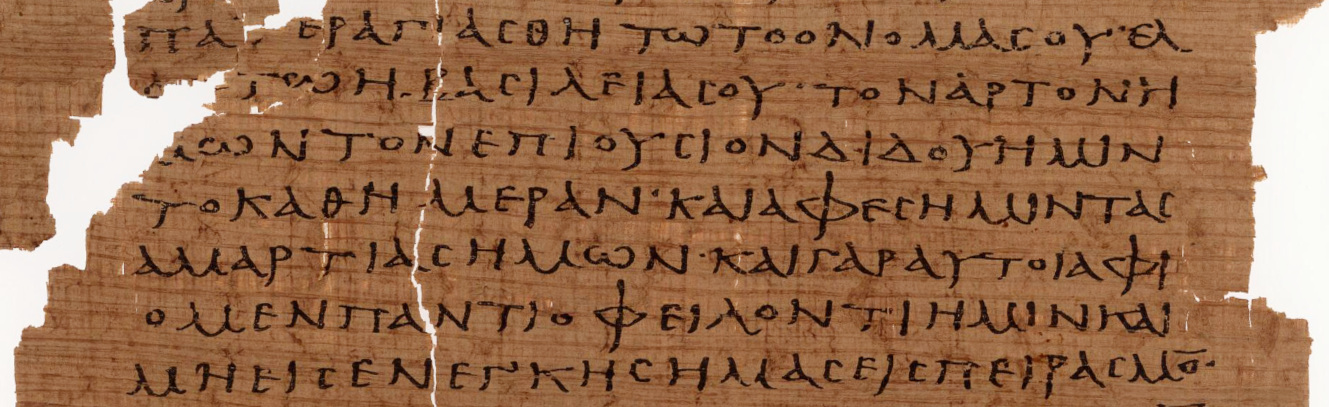 ΠΑ ΕΡΑΓΙΑCΘΗΤΩΤΟΟΝΟΜΑCΟΥ·ΕΛ
ΤΩΗΒΑCΙΛΕΙΑCΟΥ·ΤΟΝΑΡΤΟΝΗ
ΜΩΝΤΟΝΕΠΙΟΥCΙΟΝΔΙΔΟΥΗΜΙΝ
ΤΟΚΑΘΗΜΕΡΑΝ·ΚΑΙΑΦΕCΗΜΙΝΤΑC
ΑΜΑΡΤΙΑCΗΜΩΝ·ΚΑΙΓΑΡΑΥΤΟΙΑΦΙ
ΟΜΕΝΠΑΝΤΙΟΦΕΙΛΟΝΤΙΗΜΙΝΚΑΙ
ΜΗΕΙCΕΝΕΓΚΗCΗΜΑCΕΙCΠΕΙΡΑCΜΟ̅·